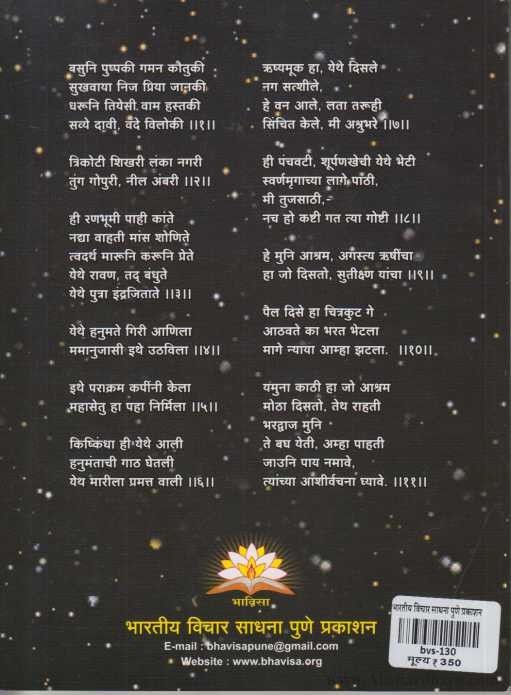 बसुनि पुष्पकी गमन कौतुकी
सुखवाया निज प्रिया जानकी
धरूनि तियेसी वाम हस्तकी
सव्ये दावी, वदे विलोकी ।।१।।
त्रिकोटी शिखरी लंका नगरी
तुंग गोपुरी, नील अंबरी ।।२।।
ही रणभूमी पाही कांते
नद्या वाहती मांस शोणिते
त्वदर्थ मारूनि करूनि प्रेते
येथे रावण, तद् बंधुते
येथे पुत्रा इंद्रजिताते ।।३।।
येथे हनुमते गिरी आणिला
ममानुजासी इथे उठविला ।।४।।
इथे पराक्रम कपींनी केला
महासेतु हा पहा निर्मिला ।।५।।
किष्किंधा ही येथे आली
हनुमंताची गाठ घेतली
येथ मारीला प्रमत्त वाली ।।६।।
ऋष्यमूक हा, येथे दिसले
नग सत्शीले,
हे वन आले, लता तरूही
सिंचित केले, मी अश्रुभरे ।।७।।
ही पंचवटी, शूर्पणखेची येथे भेटी
स्वर्णमृगाच्या लागे पाठी,
मी तुजसाठी,
नच हो कष्टी गत त्या गोष्टी ।।८।।
हे मुनि आश्रम, अगस्त्य ऋषींचा
हा जो दिसतो, सुतीक्ष्ण यांचा ।।९।।
पैल दिसे हा चित्रकुट गे
आठवते का भरत भेटला
मागे न्याया आम्हा झटला. ।।१०।।
यमुना काठी हा जो आश्रम
मोठा दिसतो, तेथ राहती
भरद्वाज मुनि
ते बघ येती, अम्हा पाहती
जाउनि पाय नमावे,
त्यांच्या आशीर्वचना घ्यावे. ।।११।।
भाविसा
भारतीय विचार साधना पुणे प्रकाशन
E-mail : bhavisapune@gmail.com
Website : www.bhavisa.org
भारतीय विचार साधना पुणे प्रकाशन
bvs-130
मूल्य ₹ 350